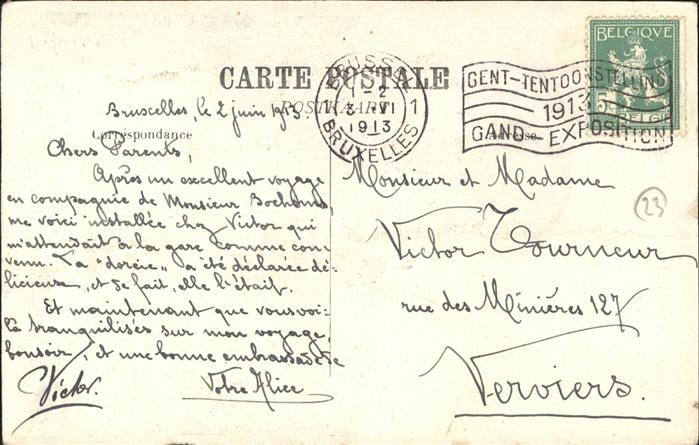 CARTE POSTALE
POSTKAART
Correspondance
Adresse
BRUSSEL
1-2
1 3 VI 1
1913
BRUXELLES
GENT-TENTOONSTELLING
1913
GAND-EXPOSITION
BELGIQUE
5 5
BELGIE
Bruxelles, le 2 juin 1913.
Chers Parents,
Après un excellent voyage
en compagnie de Monsieur
me voici installée chez Victor qui
m'attendait à la gare comme con-
venu. La "dorée" a été déclarée dé-
licieuse, et de fait, elle l'était.
Et maintenant que vous voi-
là tranquilisés sur mon voyage,
bonsoir, et une bonne embrassade de
Victor. Votre Alice
Monsieur et Madame
Victor Tourneur
rue des Minières 127
Verviers.
23